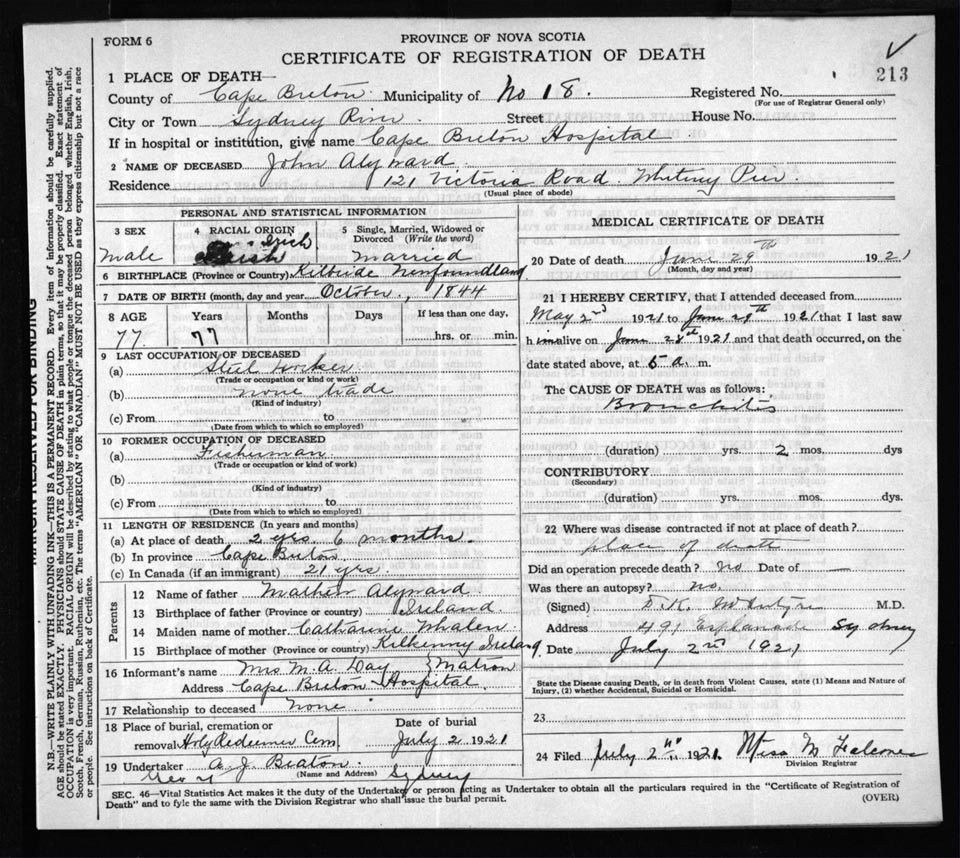 FORM 6
PROVINCE OF NOVA SCOTIA
CERTIFICATE OF REGISTRATION OF DEATH
213
1 PLACE OF DEATH—
County of Cape Breton Municipality of No 18. Registered No.
(For use of Registrar General only)
City or Town Sydney River Street House No.
If in hospital or institution, give name Cape Breton Hospital
2 NAME OF DECEASED John Alyward
Residence 121 Victoria Road. Whitney Pier.
(Usual place of abode)
PERSONAL AND STATISTICAL INFORMATION
3 SEX 4 RACIAL ORIGIN 5 Single, Married, Widowed or Divorced (Write the word)
Male Irish Married
6 BIRTHPLACE (Province or Country) Kilbride Newfoundland
7 DATE OF BIRTH (month, day and year October, 1844
8 AGE Years Months Days If less than one day,
77. 77 hrs. or min.
9 LAST OCCUPATION OF DECEASED
(a) Steel Worker
(Trade or occupation or kind or work)
(b) none trade
(Kind of industry)
(c) From to
(Date from which to which so employed)
10 FORMER OCCUPATION OF DECEASED
(a) Fisherman
(Trade or occupation or kind of work)
(b)
(Kind of industry)
(c) From to
(Date from which to which so employed)
11 LENGTH OF RESIDENCE (In years and months)
(a) At place of death 2 yrs 6 months.
(b) In province Cape Breton
(c) In Canada (if an immigrant) 21 yrs.
Parents
12 Name of father Mathew Alyward
13 Birthplace of father (Province or country) Ireland.
14 Maiden name of mother Catharine Whalen
15 Birthplace of mother (Province or country) Kilkenny Ireland
16 Informant's name Mrs M. A. Day Matron
Address Cape Breton Hospital
17 Relationship to deceased none
18 Place of burial, cremation or Date of burial
removal Holy Redeemer Cem July 2 1921
19 Undertaker A. J. Beaton
(Name and Address) Sydney
MEDICAL CERTIFICATE OF DEATH
20 Date of death June 29th 1921
(Month, day and year)
21 I HEREBY CERTIFY, that I attended deceased from
May 2nd 1921 to June 28th 1921 that I last saw
him alive on June 28th 1921 and that death occurred, on the
date stated above, at 5 a. m.
The CAUSE OF DEATH was as follows:
Bronchitis
(duration) yrs. 2 mos. dys
CONTRIBUTORY
(Secondary)
(duration) yrs. mos. dys.
22 Where was disease contracted if not at place of death?
place of death
Did an operation precede death? No Date of —
Was there an autopsy? no.
(Signed) McIntyre M.D.
Address 491 Esplanade Sydney
Date July 2nd 1921
State the Disease causing Death, or in death from Violent Causes, state (1) Means and Nature of
Injury, (2) whether Accidental, Suicidal or Homicidal.
23
24 Filed July 2nd 1921. Miss M Falconer
Division Registrar
SEC. 46—Vital Statistics Act makes it the duty of the Undertaker or person acting as Undertaker to obtain all the particulars required in the "Certificate of Registration of
Death" and to fyle the same with the Division Registrar who shall issue the burial permit.
(OVER)
MARGIN RESERVED FOR BINDING
N.B.—WRITE PLAINLY WITH UNFADING INK—THIS IS A PERMANENT RECORD. Every item of information should be carefully supplied.
AGE should be stated EXACTLY. PHYSICIANS should STATE CAUSE OF DEATH in plain terms, so that it may be properly classified. Exact statement of
OCCUPATION is very important. RACIAL ORIGIN will be described by stating to what people or tongue the deceased person belonged whether English, Irish,
Scotch, French, German, Russian, Ruthenian, etc. The terms "AMERICAN" or "CANADIAN" MUST NOT BE USED as they express citizenship but not a race
or people. See instructions on back of Certificate.